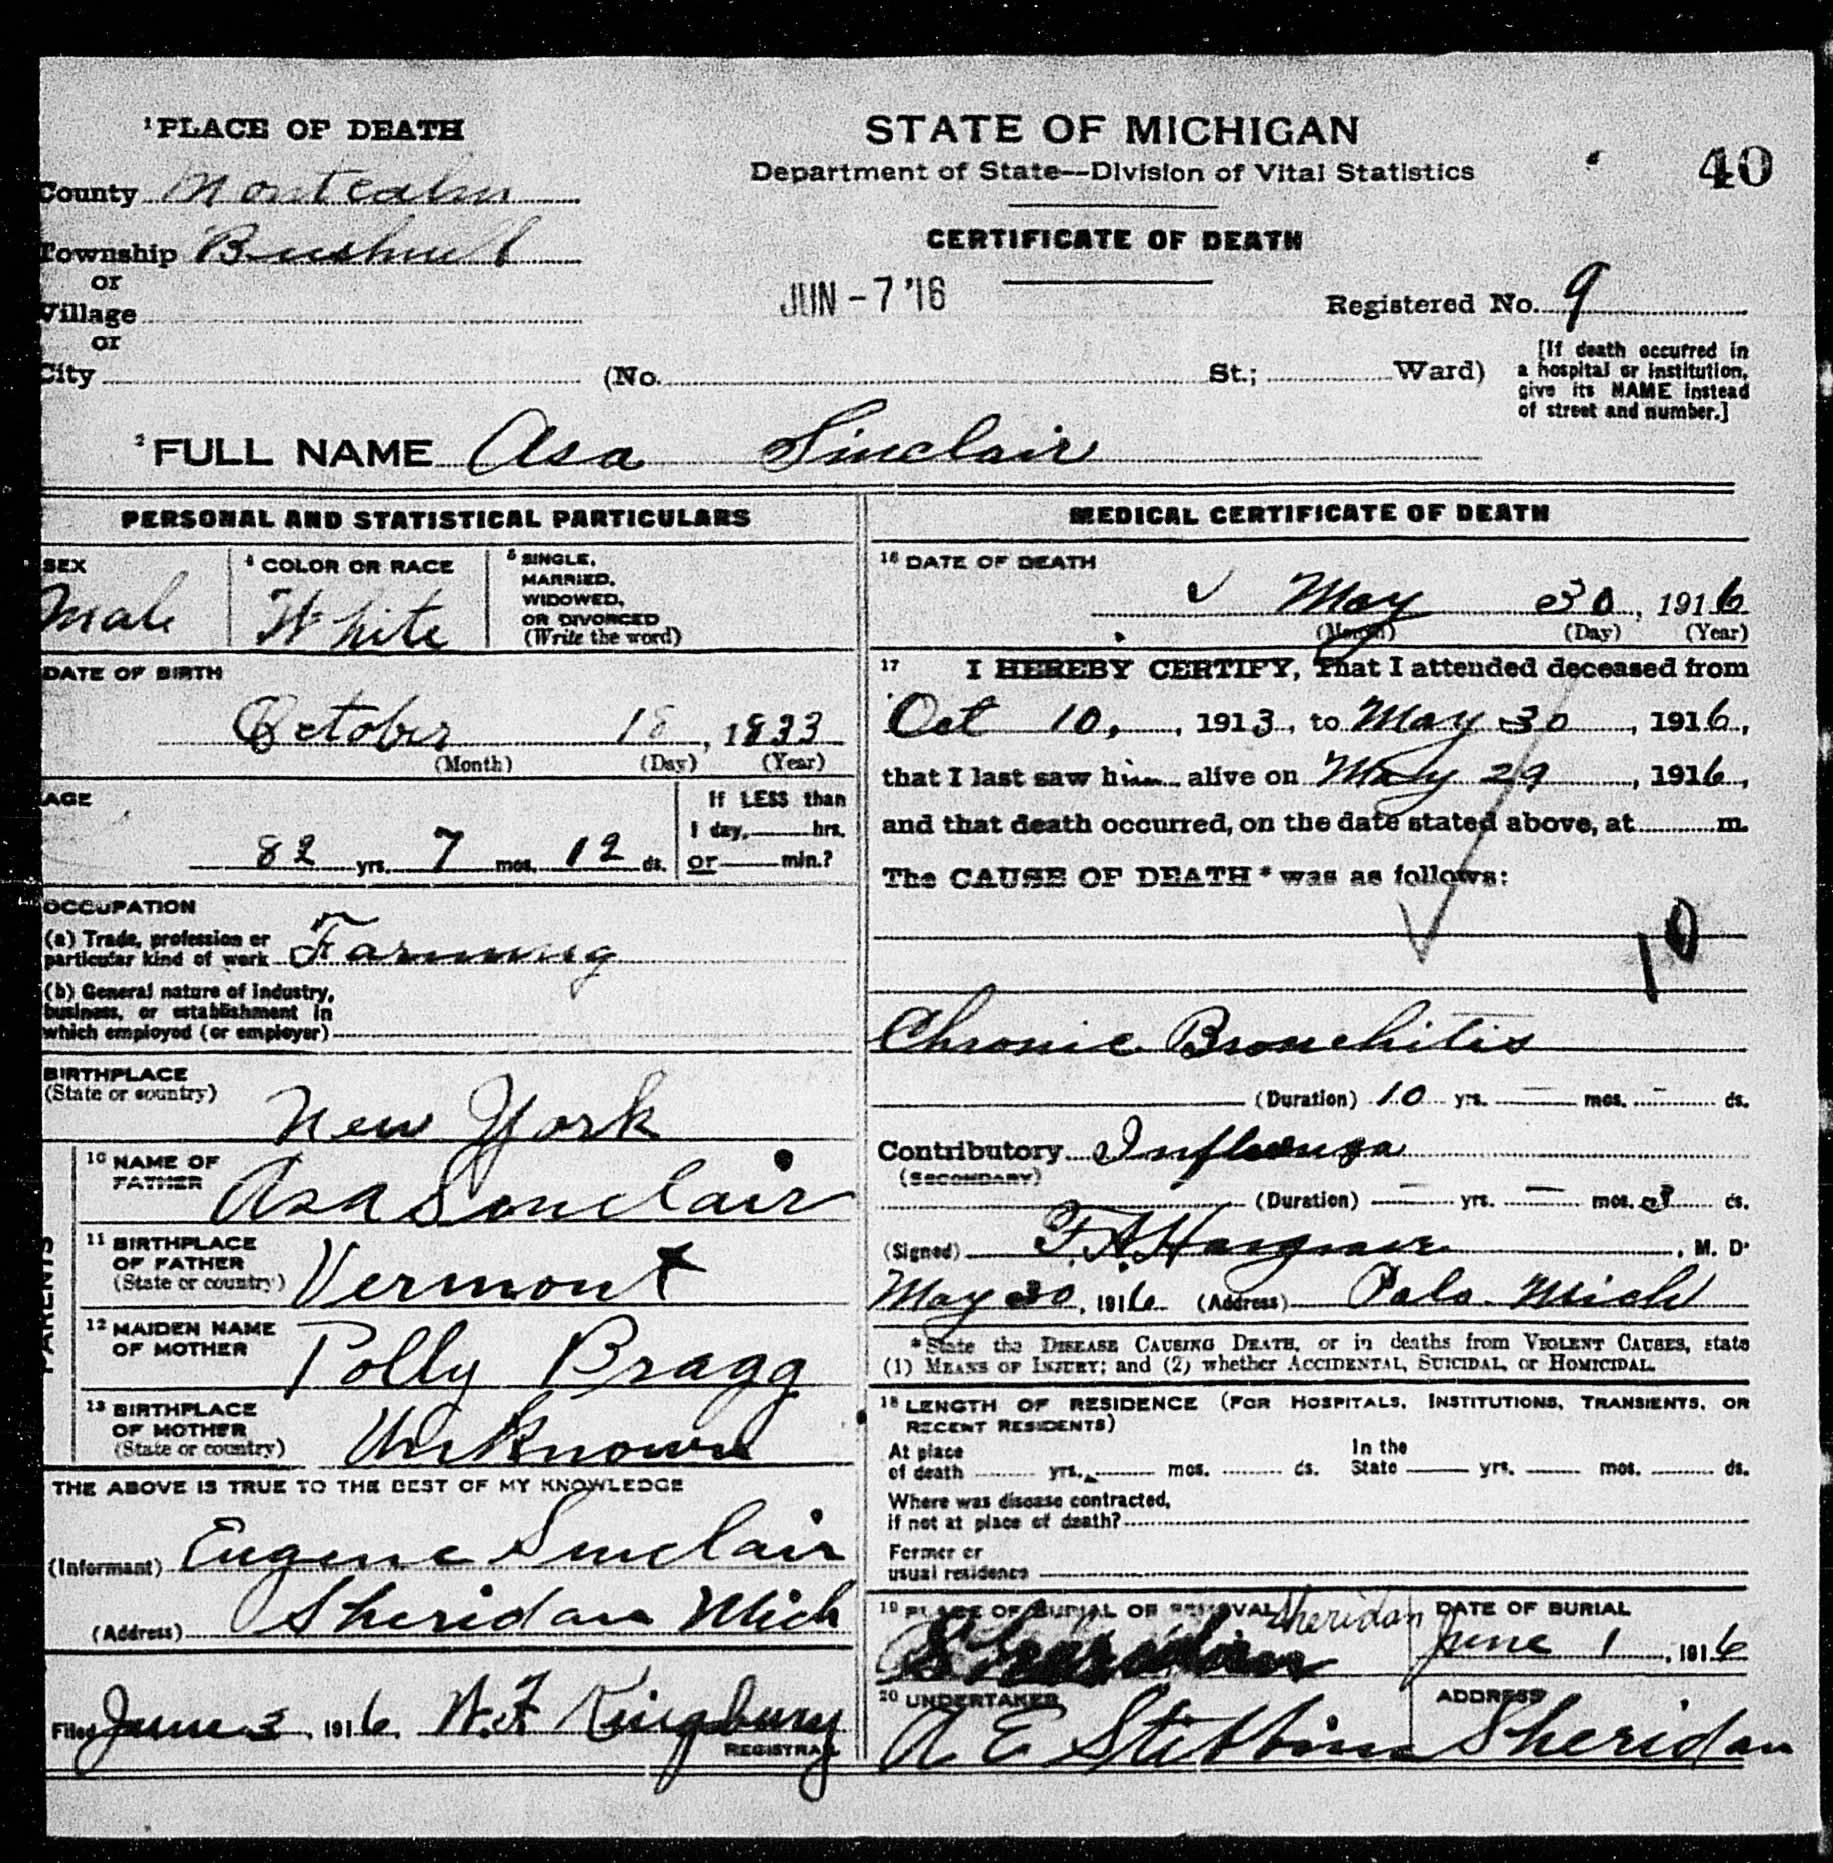 ¹PLACE OF DEATH
County Montcalm
Township Bushnell
or
Village
or
City (No. St.; Ward)
STATE OF MICHIGAN
Department of State—Division of Vital Statistics
40
CERTIFICATE OF DEATH
JUN -7 '16
Registered No. 9
[If death occurred in
a hospital or institution,
give its NAME instead
of street and number.]
²FULL NAME Asa Sinclair
PERSONAL AND STATISTICAL PARTICULARS
SEX
Male
⁴ COLOR OR RACE
White
⁵ SINGLE,
MARRIED,
WIDOWED,
OR DIVORCED
(Write the word)
DATE OF BIRTH
October 18, 1833
(Month) (Day) (Year)
AGE
82 yrs. 7 mos. 12 ds.
If LESS than
1 day, hrs.
or min.?
OCCUPATION
(a) Trade, profession or
particular kind of work Farming
(b) General nature of industry,
business, or establishment in
which employed (or employer)
BIRTHPLACE
(State or country)
New York
PARENTS
¹⁰ NAME OF
FATHER
Asa Sinclair
¹¹ BIRTHPLACE
OF FATHER
(State or country) Vermont
¹² MAIDEN NAME
OF MOTHER
Polly Bragg
¹³ BIRTHPLACE
OF MOTHER
(State or country) Unknown
THE ABOVE IS TRUE TO THE BEST OF MY KNOWLEDGE
(Informant) Eugene Sinclair
(Address) Sheridan Mich
Filed June 3, 1916 W.F. Kingsbury
REGISTRAR
MEDICAL CERTIFICATE OF DEATH
¹⁶ DATE OF DEATH
May 30, 1916
(Month) (Day) (Year)
¹⁷ I HEREBY CERTIFY, That I attended deceased from
Oct 10, , 1913, to May 30, 1916,
that I last saw him alive on May 29, 1916,
and that death occurred, on the date stated above, at m.
The CAUSE OF DEATH * was as follows:
10
Chronic Bronchitis
(Duration) 10 yrs. — mos. — ds.
Contributory Influenza
(SECONDARY)
(Duration) — yrs. — mos. 8 ds.
(Signed) F. A. Hargrave, M. D.
May 30, 1916 (Address) Palo. Mich
*State the DISEASE CAUSING DEATH, or in deaths from VIOLENT CAUSES, state
(1) MEANS OF INJURY; and (2) whether ACCIDENTAL, SUICIDAL, or HOMICIDAL.
¹⁸ LENGTH OF RESIDENCE (FOR HOSPITALS, INSTITUTIONS, TRANSIENTS, OR
RECENT RESIDENTS)
At place
of death yrs. mos. ds.
In the
State yrs. mos. ds.
Where was disease contracted,
if not at place of death?
Former or
usual residence
¹⁹ PLACE OF BURIAL OR REMOVAL Sheridan
Sheridan
DATE OF BURIAL
June 1, 1916
²⁰ UNDERTAKER
A E Stebbins
ADDRESS
Sheridan